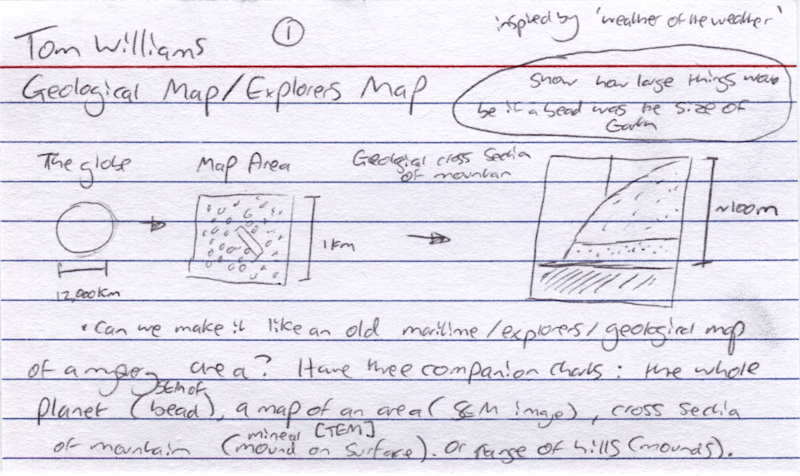 Tom Williams
①
inspired by 'weather of the weather'
Geological Map/Explorers Map
Show how large things would
be if a bead was the size of
Earth
The globe
Map Area
Geological cross section
of mountain
12,000km
1km
~100m
• Can we make it like an old maritime/explorers/geological map
of a area? Have three companion charts: the whole
planet (SEM of bead), a map of an area (SEM image), cross section
of mountain (mineral mound on surface) [TEM]. Or range of hills (mounds).